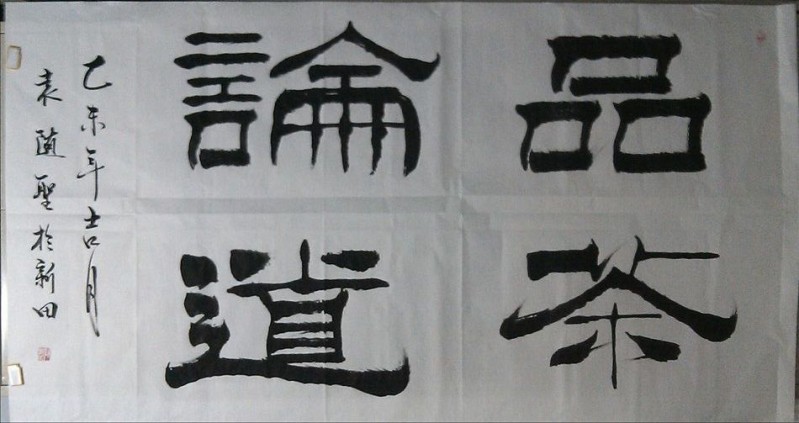 品茶
論道
乙未年吉月
袁随聖於新田